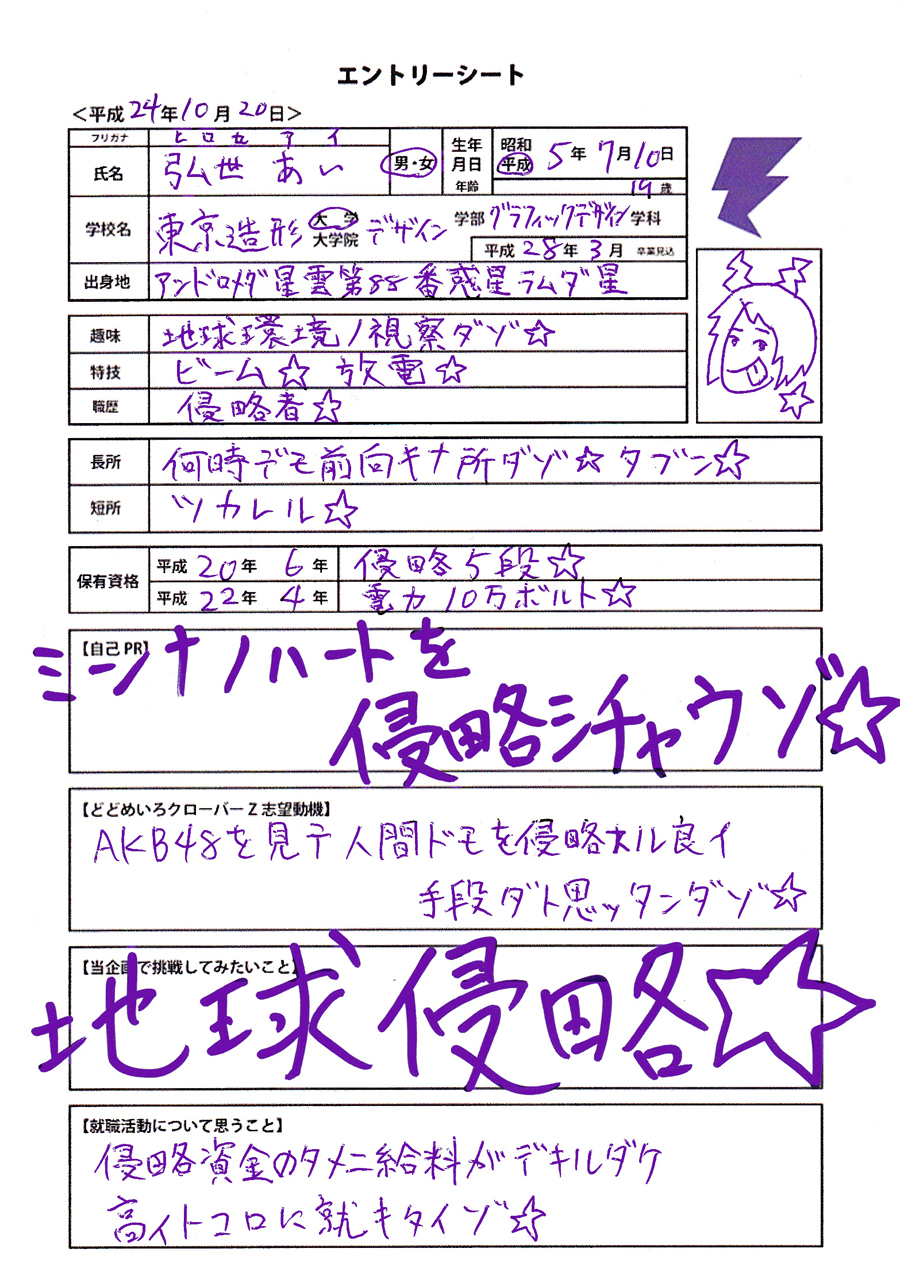 エントリーシート
＜平成24年10月20日＞
フリガナ ヒロセ アイ
氏名 弘世 あい 男・女 生年月日 昭和 平成 5年7月10日
年齢 19歳
学校名 東京造形 大学 大学院 デザイン 学部 グラフィックデザイン 学科
平成28年3月 卒業見込
出身地 アンドロメダ星雲第88番惑星ラムダ星
趣味 地球環境ノ視察ダゾ☆
特技 ビーム☆ 放電☆
職歴 侵略者☆
長所 何時デモ前向キナ所ダゾ☆タブン☆
短所 ツカレル☆
保有資格 平成20年6年 侵略5段☆
平成22年4年 電力10万ボルト☆
【自己PR】
ミーンナノハートを
侵略シチャウゾ☆
【どどめいろクローバーZ志望動機】
AKB48を見テ人間ドモを侵略スル良イ
手段ダト思ッタンダゾ☆
【当企画で挑戦してみたいこと】
地球侵略☆
【就職活動について思うこと】
侵略資金のタメニ給料がデキルダケ
高イトコロに就キタイゾ☆